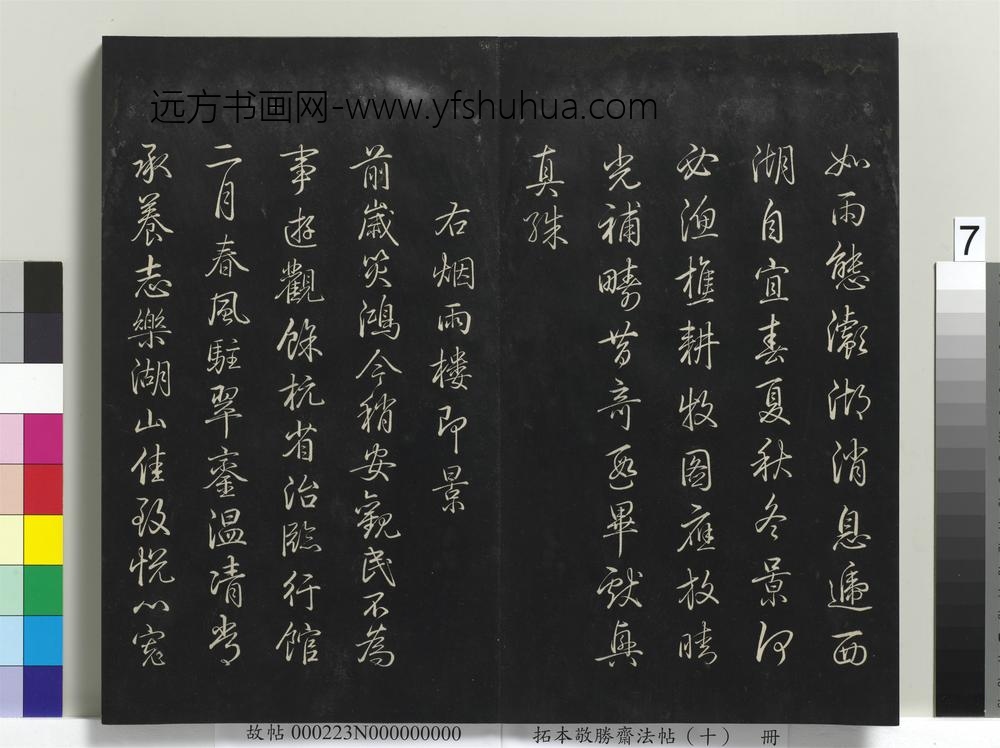 远方书画网-www.yfshuhua.com
如雨態瀫湖消息遞西
湖自宜春夏秋冬景何
必漁樵耕牧图應放晴
光補疇昔奇画畢獻興
真殊
右烟雨楼即景
前歲災鴻今稍安觀民不為
事遊觀餘杭省治臨行館
二月春風駐翠鑾温凊常
承養志樂湖山佳致悦心寛
7
故帖 000223N000000000
拓本敬勝齋法帖（十） 冊